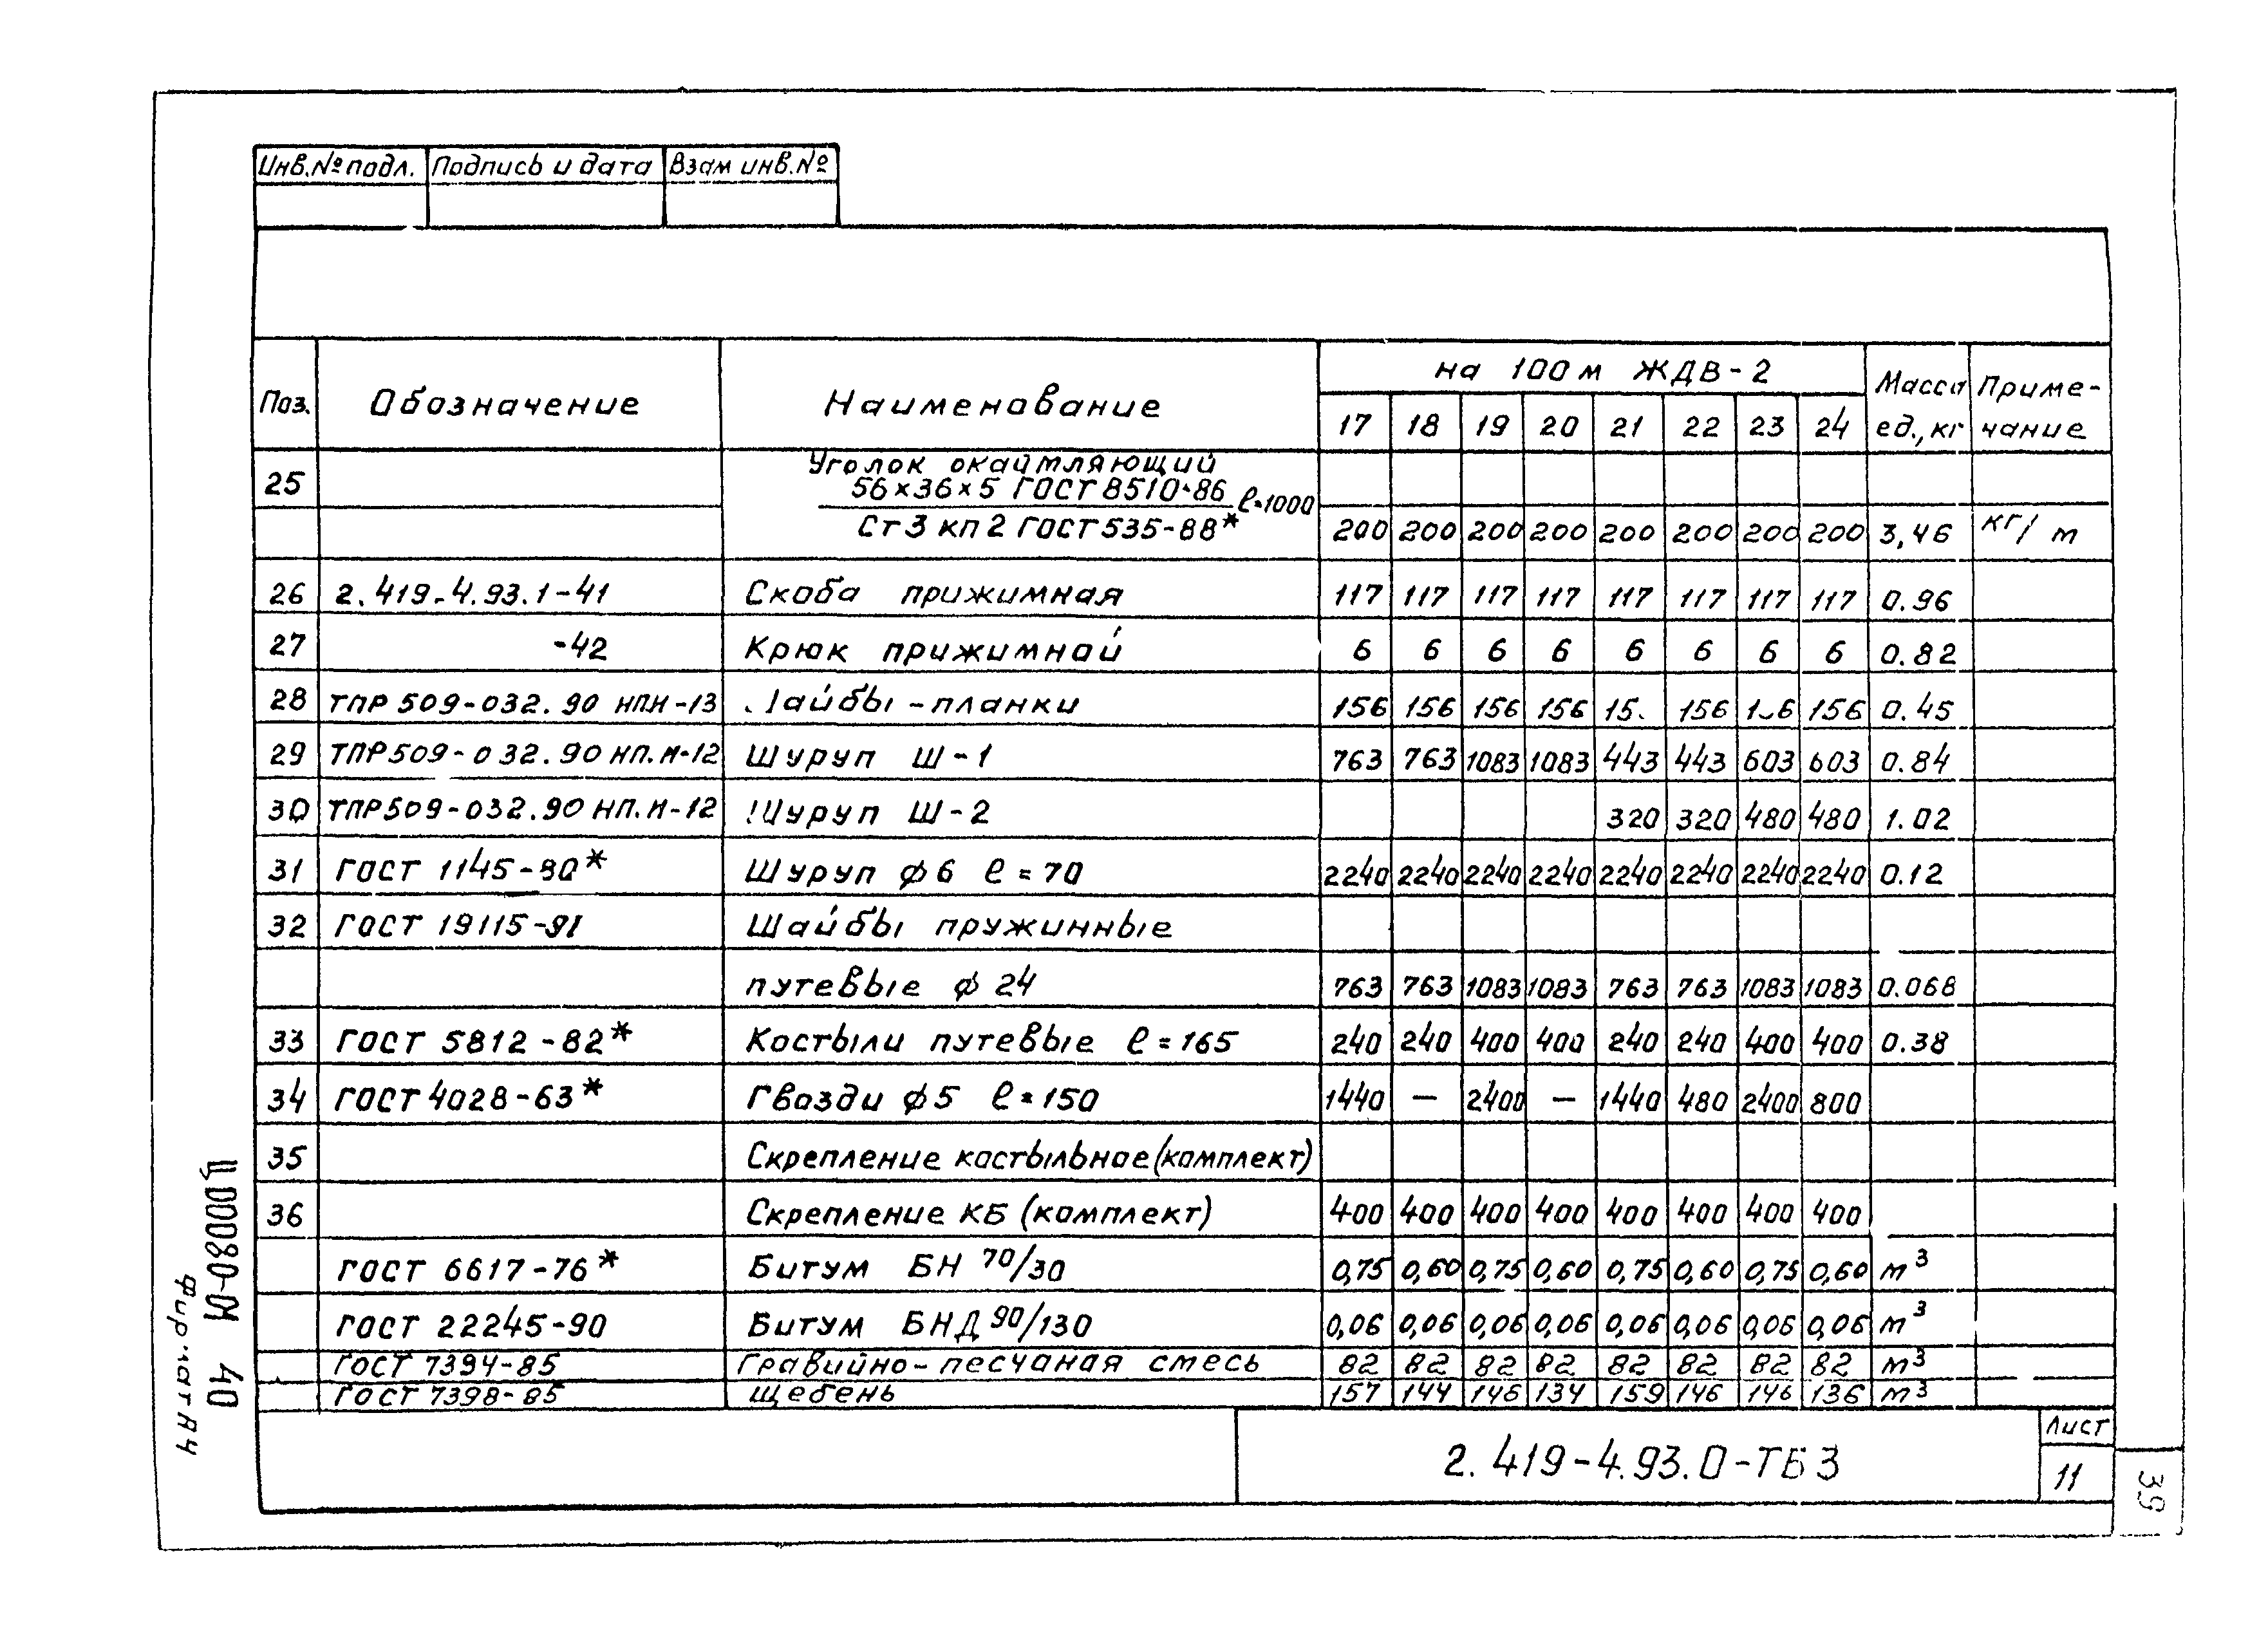 Инв.№ подл. Подпись и дата Взам инв.№
Поз. Обозначение Наименование на 100 м ЖДВ-2 Масса ед., кг Приме-чание
17 18 19 20 21 22 23 24
25 Уголок окаймляющий
56×36×5 ГОСТ 8510-86 ℓ=1000
Ст 3 кп 2 ГОСТ 535-88* 200 200 200 200 200 200 200 200 3,46 кг/м
26 2.419-4.93.1-41 Скоба прижимная 117 117 117 117 117 117 117 117 0.96
27 -42 Крюк прижимной 6 6 6 6 6 6 6 6 0.82
28 ТПР 509-032.90 НПН-13 Шайбы-планки 156 156 156 156 156 156 0.45
29 ТПР509-032.90 НП.И-12 Шуруп Ш-1 763 763 1083 1083 443 443 603 603 0.84
30 ТПР509-032.90 НП.И-12 Шуруп Ш-2 320 320 480 480 1.02
31 ГОСТ 1145-80* Шуруп ϕ6 ℓ=70 2240 2240 2240 2240 2240 2240 2240 2240 0.12
32 ГОСТ 19115-91 Шайбы пружинные
путевые ϕ 24 763 763 1083 1083 763 763 1083 1083 0.068
33 ГОСТ 5812-82* Костыли путевые ℓ=165 240 240 400 400 240 240 400 400 0.38
34 ГОСТ 4028-63* Гвозди ϕ5 ℓ=150 1440 — 2400 — 1440 480 2400 800
35 Скрепление костыльное (комплект)
36 Скрепление КБ (комплект) 400 400 400 400 400 400 400 400
ГОСТ 6617-76* Битум БН 70/30 0,75 0,60 0,75 0,60 0,75 0,60 0,75 0,60 м³
ГОСТ 22245-90 Битум БНД 90/130 0,06 0,06 0,06 0,06 0,06 0,06 0,06 0,06 м³
ГОСТ 7394-85 Гравийно-песчаная смесь 82 82 82 82 82 82 82 82 м³
ГОСТ 7398-85 щебень 157 144 146 134 159 146 146 136 м³
2.419-4.93.0-ТБ3
Лист
11
39
Ц00080-01 40
Формат А4